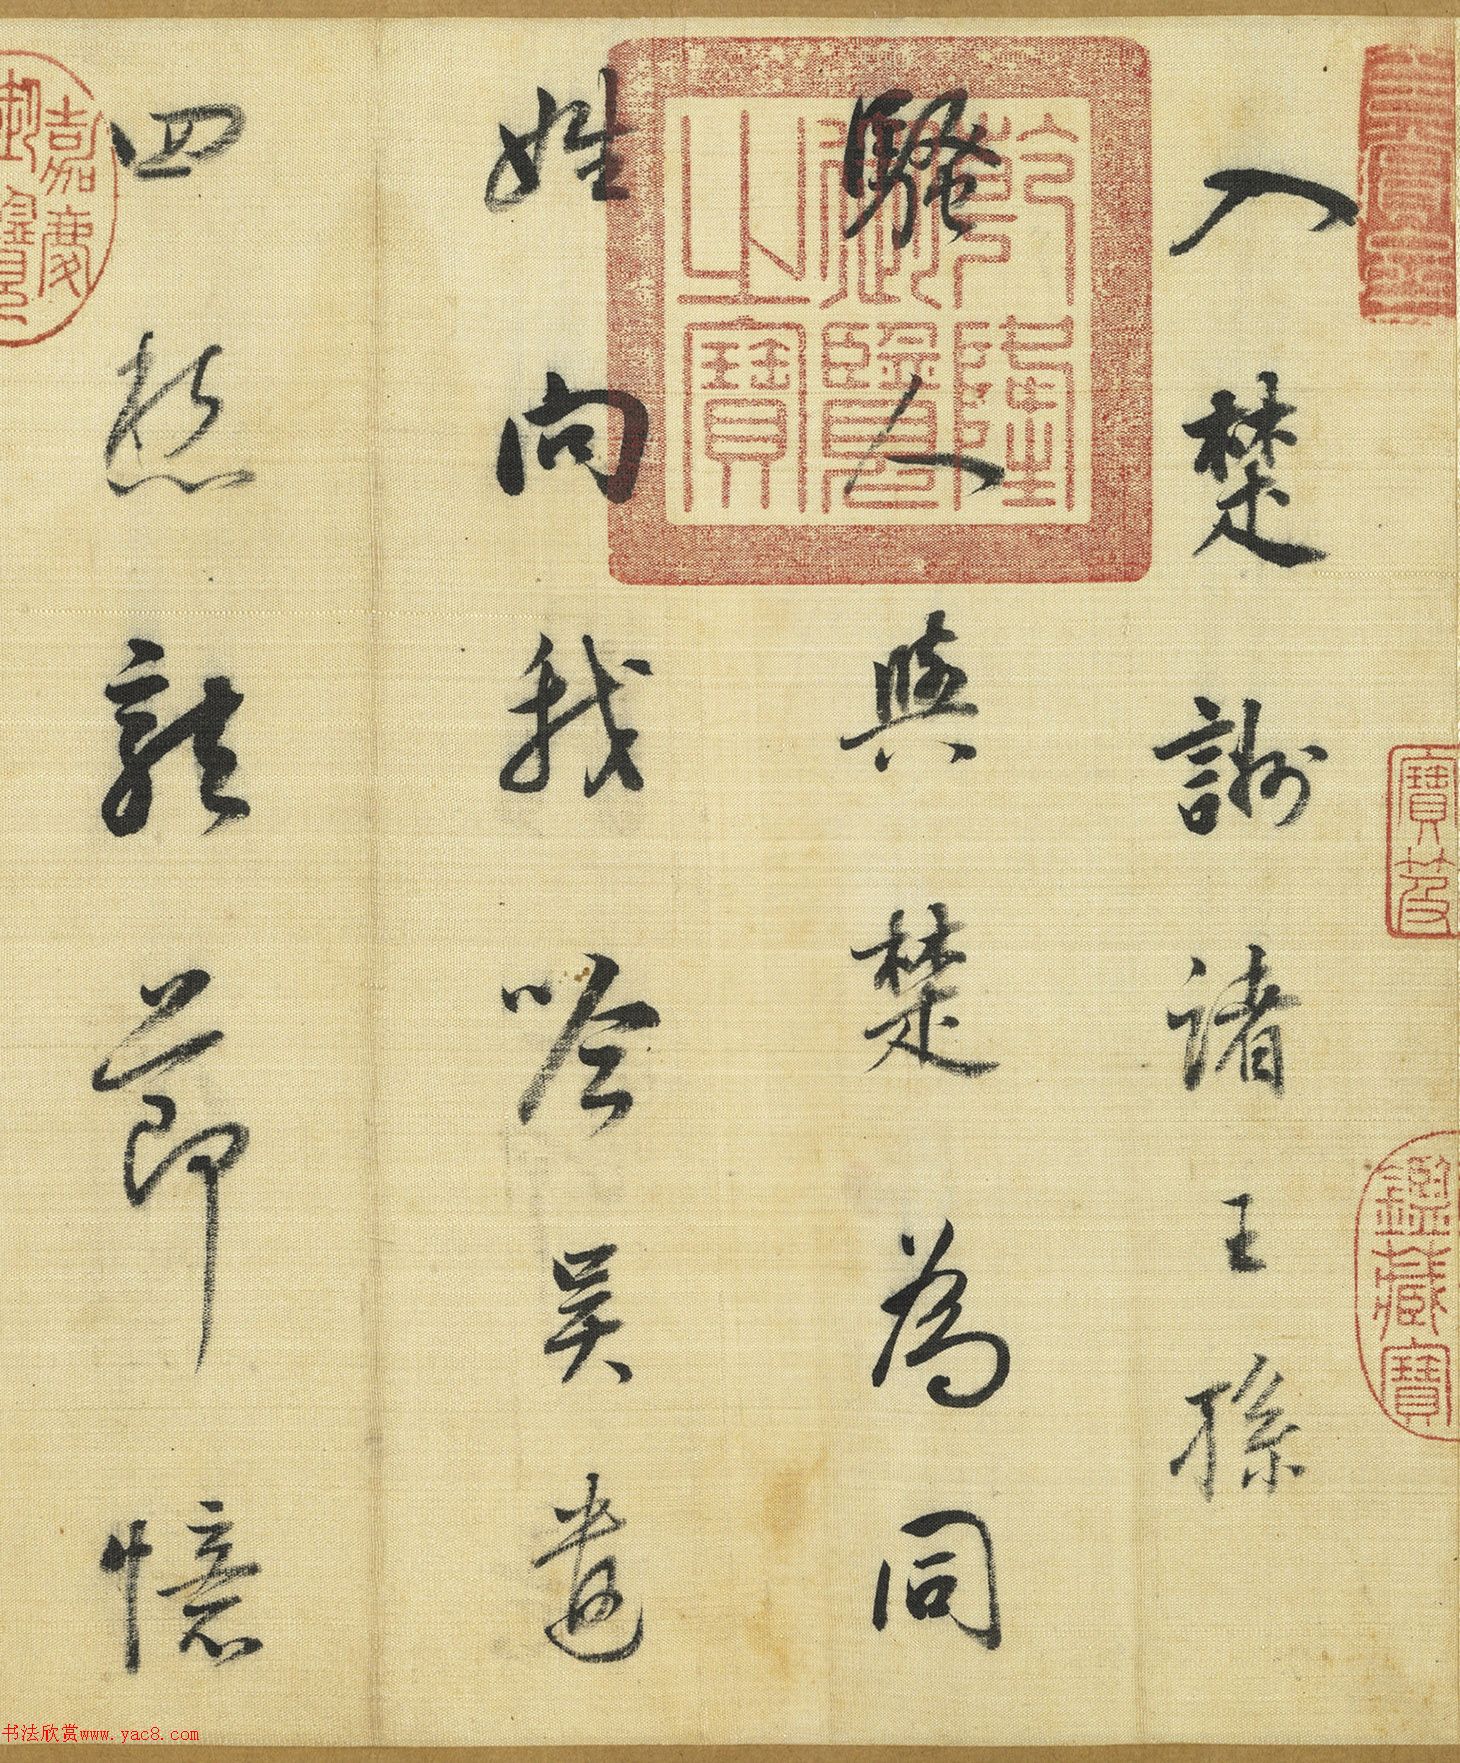 入楚詶諸王孫
騷人與楚為同
姓向我吟吳遺
四愁龍節憶
乾隆御覽之寶
寶笈
鑑藏寶
嘉慶御覽
书法欣赏www.yac8.com